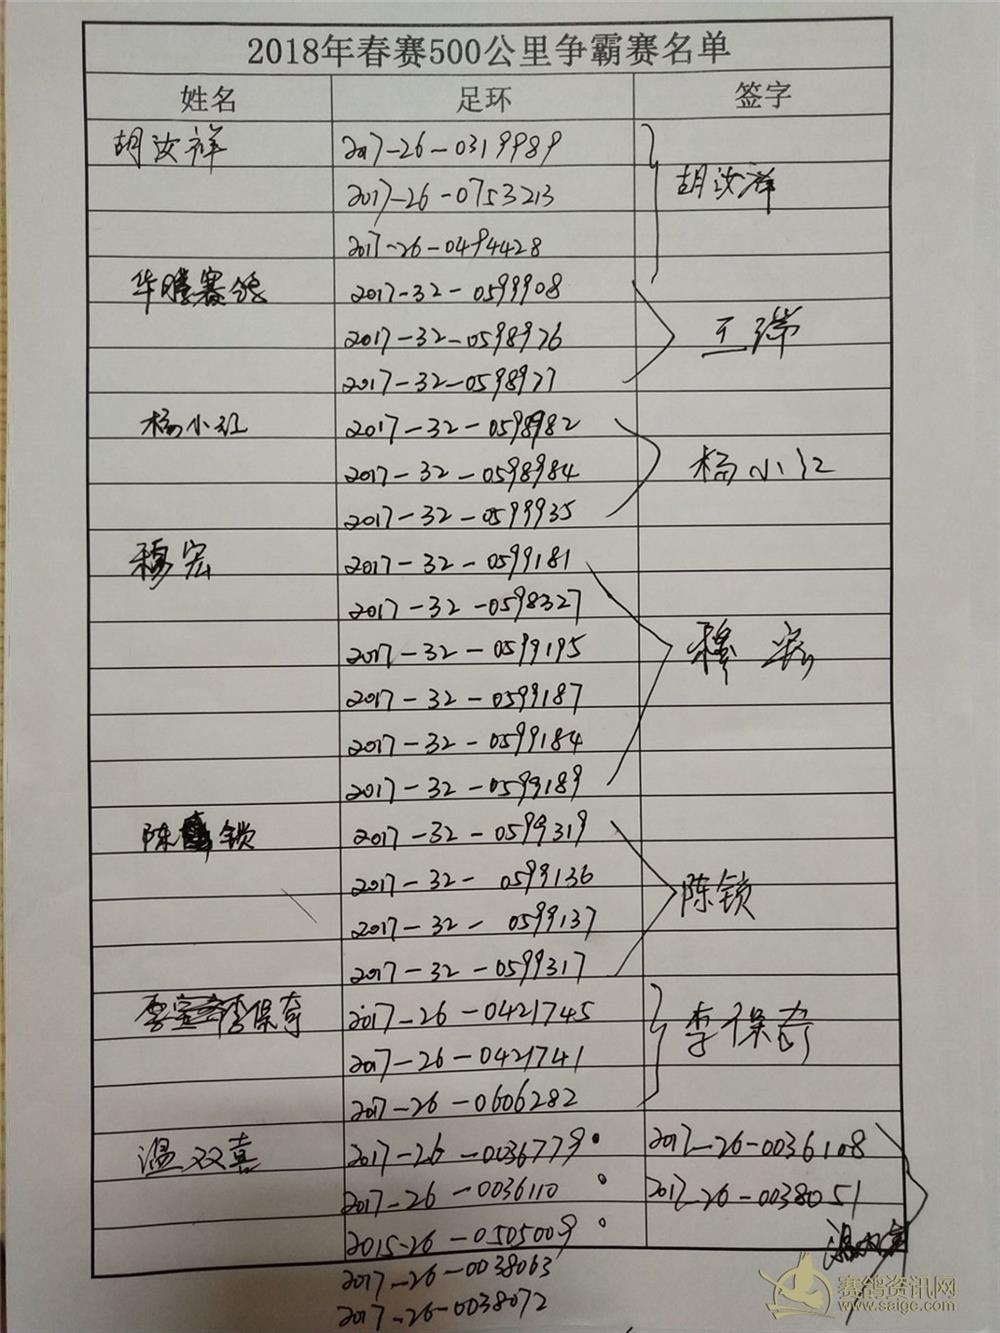 2018年春赛500公里争霸赛名单
姓名 足环 签字
胡汝祥 2017-26-0319989
2017-26-0753213 胡汝祥
2017-26-0494428
华腾赛鸽 2017-32-0599908
2017-32-0598976 王瑞
2017-32-0598977
杨小红 2017-32-0598982
2017-32-0598984 杨小红
2017-32-0599935
穆宏 2017-32-0599181
2017-32-0598327
2017-32-0599195 穆宏
2017-32-0599187
2017-32-0599184
2017-32-0599189
陈锁 2017-32-0599319
2017-32-0599136 陈锁
2017-32-0599137
2017-32-0599317
李保奇 2017-26-0421745 李保奇
2017-26-0421741
2017-26-0606282
温双喜 2017-26-0036779 2017-26-0036108
2017-26-0036110 2017-26-0038051
2015-26-0505009 温双喜
2017-26-0038063
2017-26-0038072
赛鸽资讯网
www.saigc.com